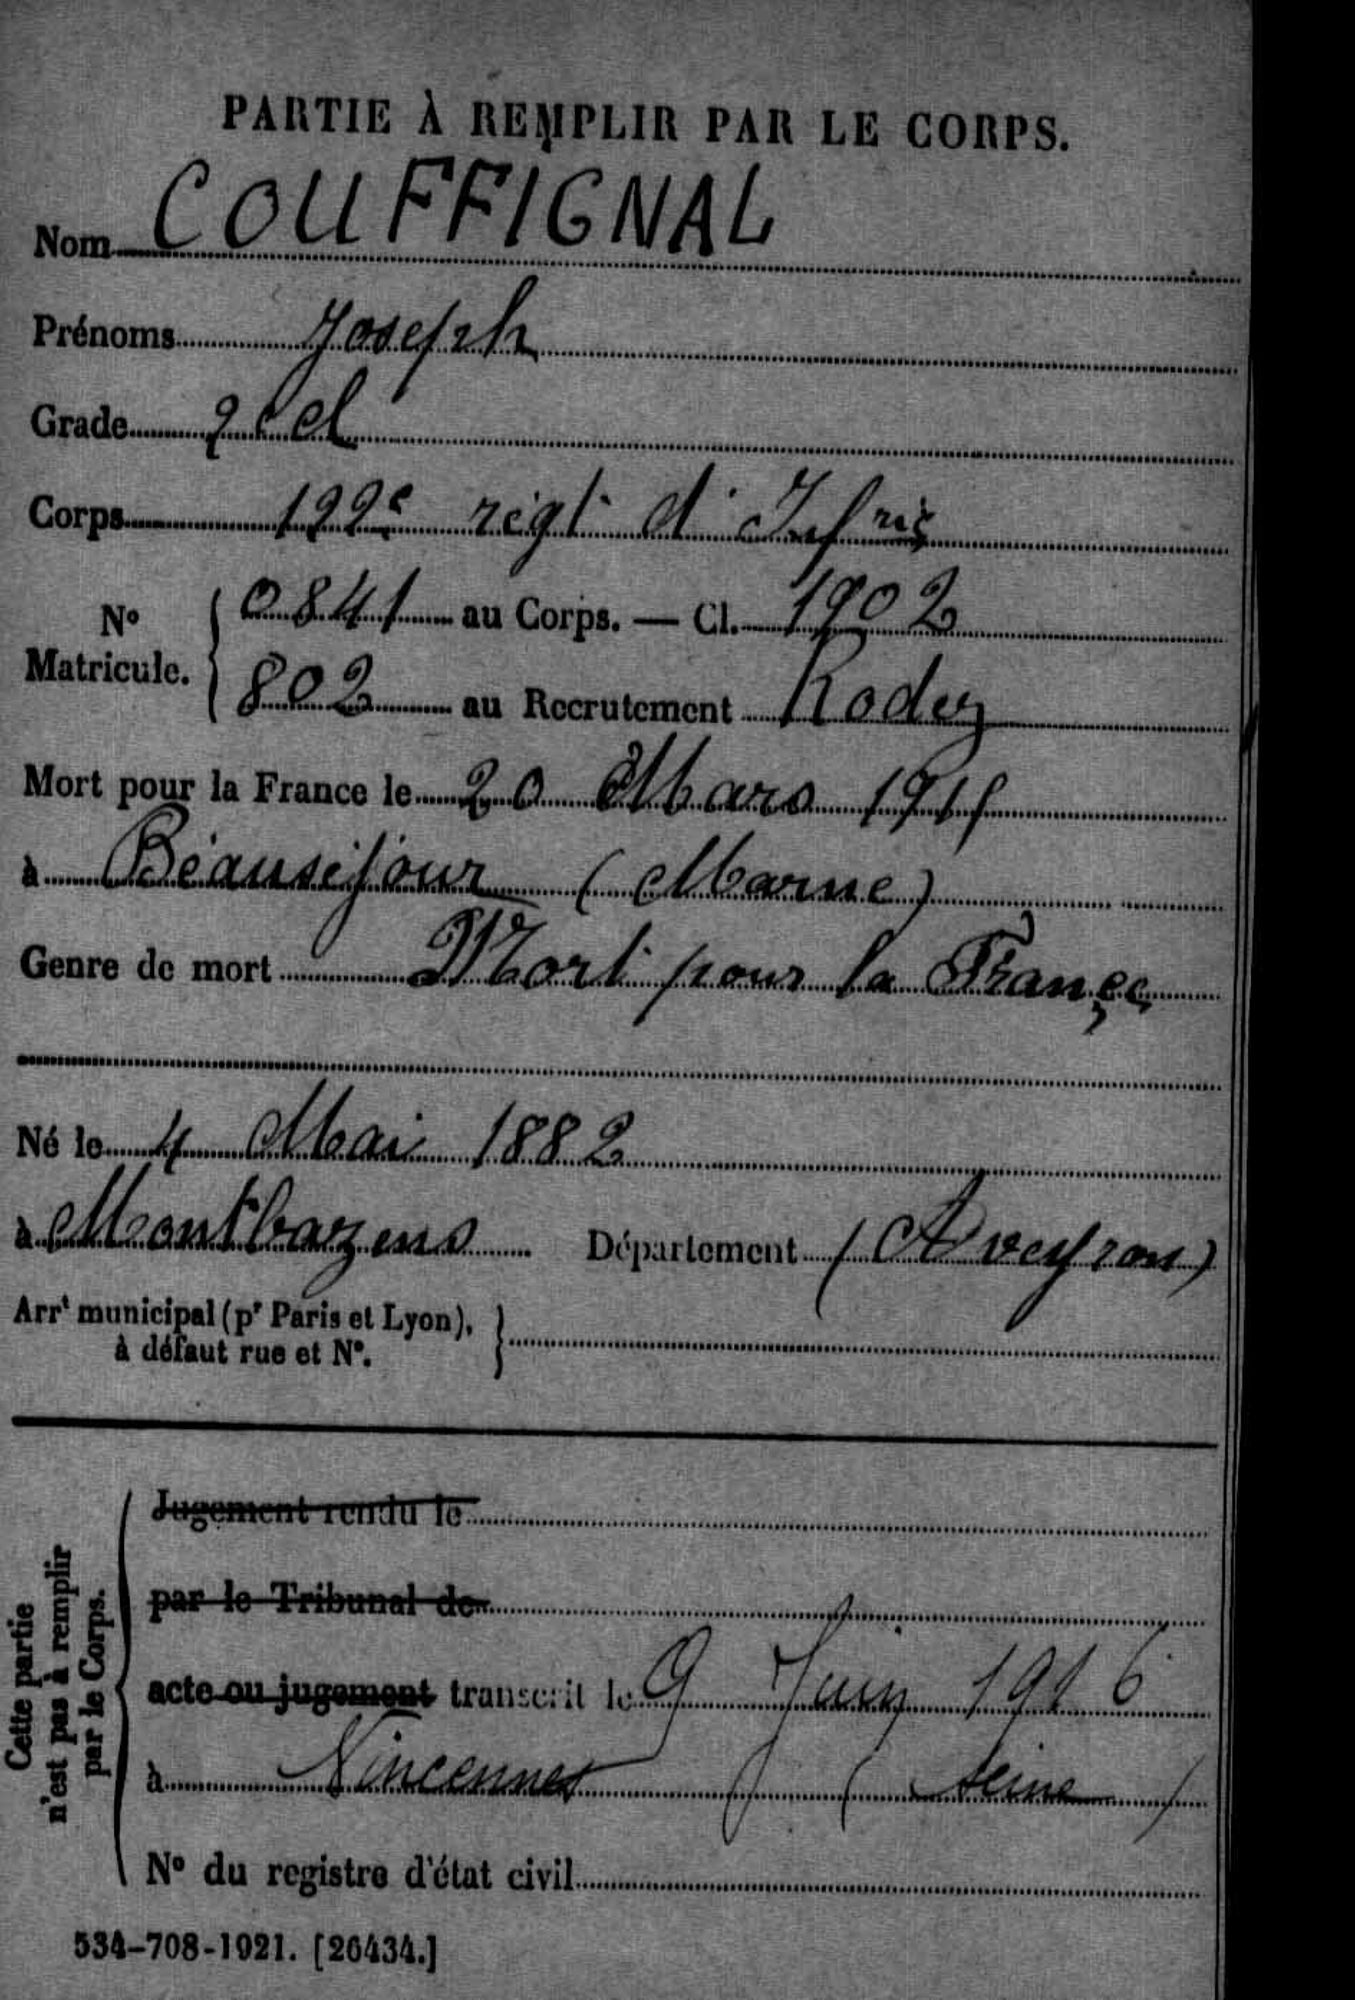 PARTIE À REMPLIR PAR LE CORPS.
Nom COUFFIGNAL
Prénoms Joseph
Grade 2e cl
Corps 122e régt d'Infrie
No Matricule. { 0841 au Corps. — Cl. 1902
802 au Recrutement Rodez
Mort pour la France le 20 Mars 1915
à Béauséjour (Marne)
Genre de mort Mort pour la France
Né le 4 Mai 1882
à Montbazens Département (Aveyron)
Arrt municipal (pr Paris et Lyon), }
à défaut rue et No.
Cette partie
n'est pas à remplir
par le Corps.
Jugement rendu le
par le Tribunal de
acte ou jugement transcrit le 9 Juin 1916
à Vincennes (Seine)
No du registre d'état civil
534-708-1921. [26434.]